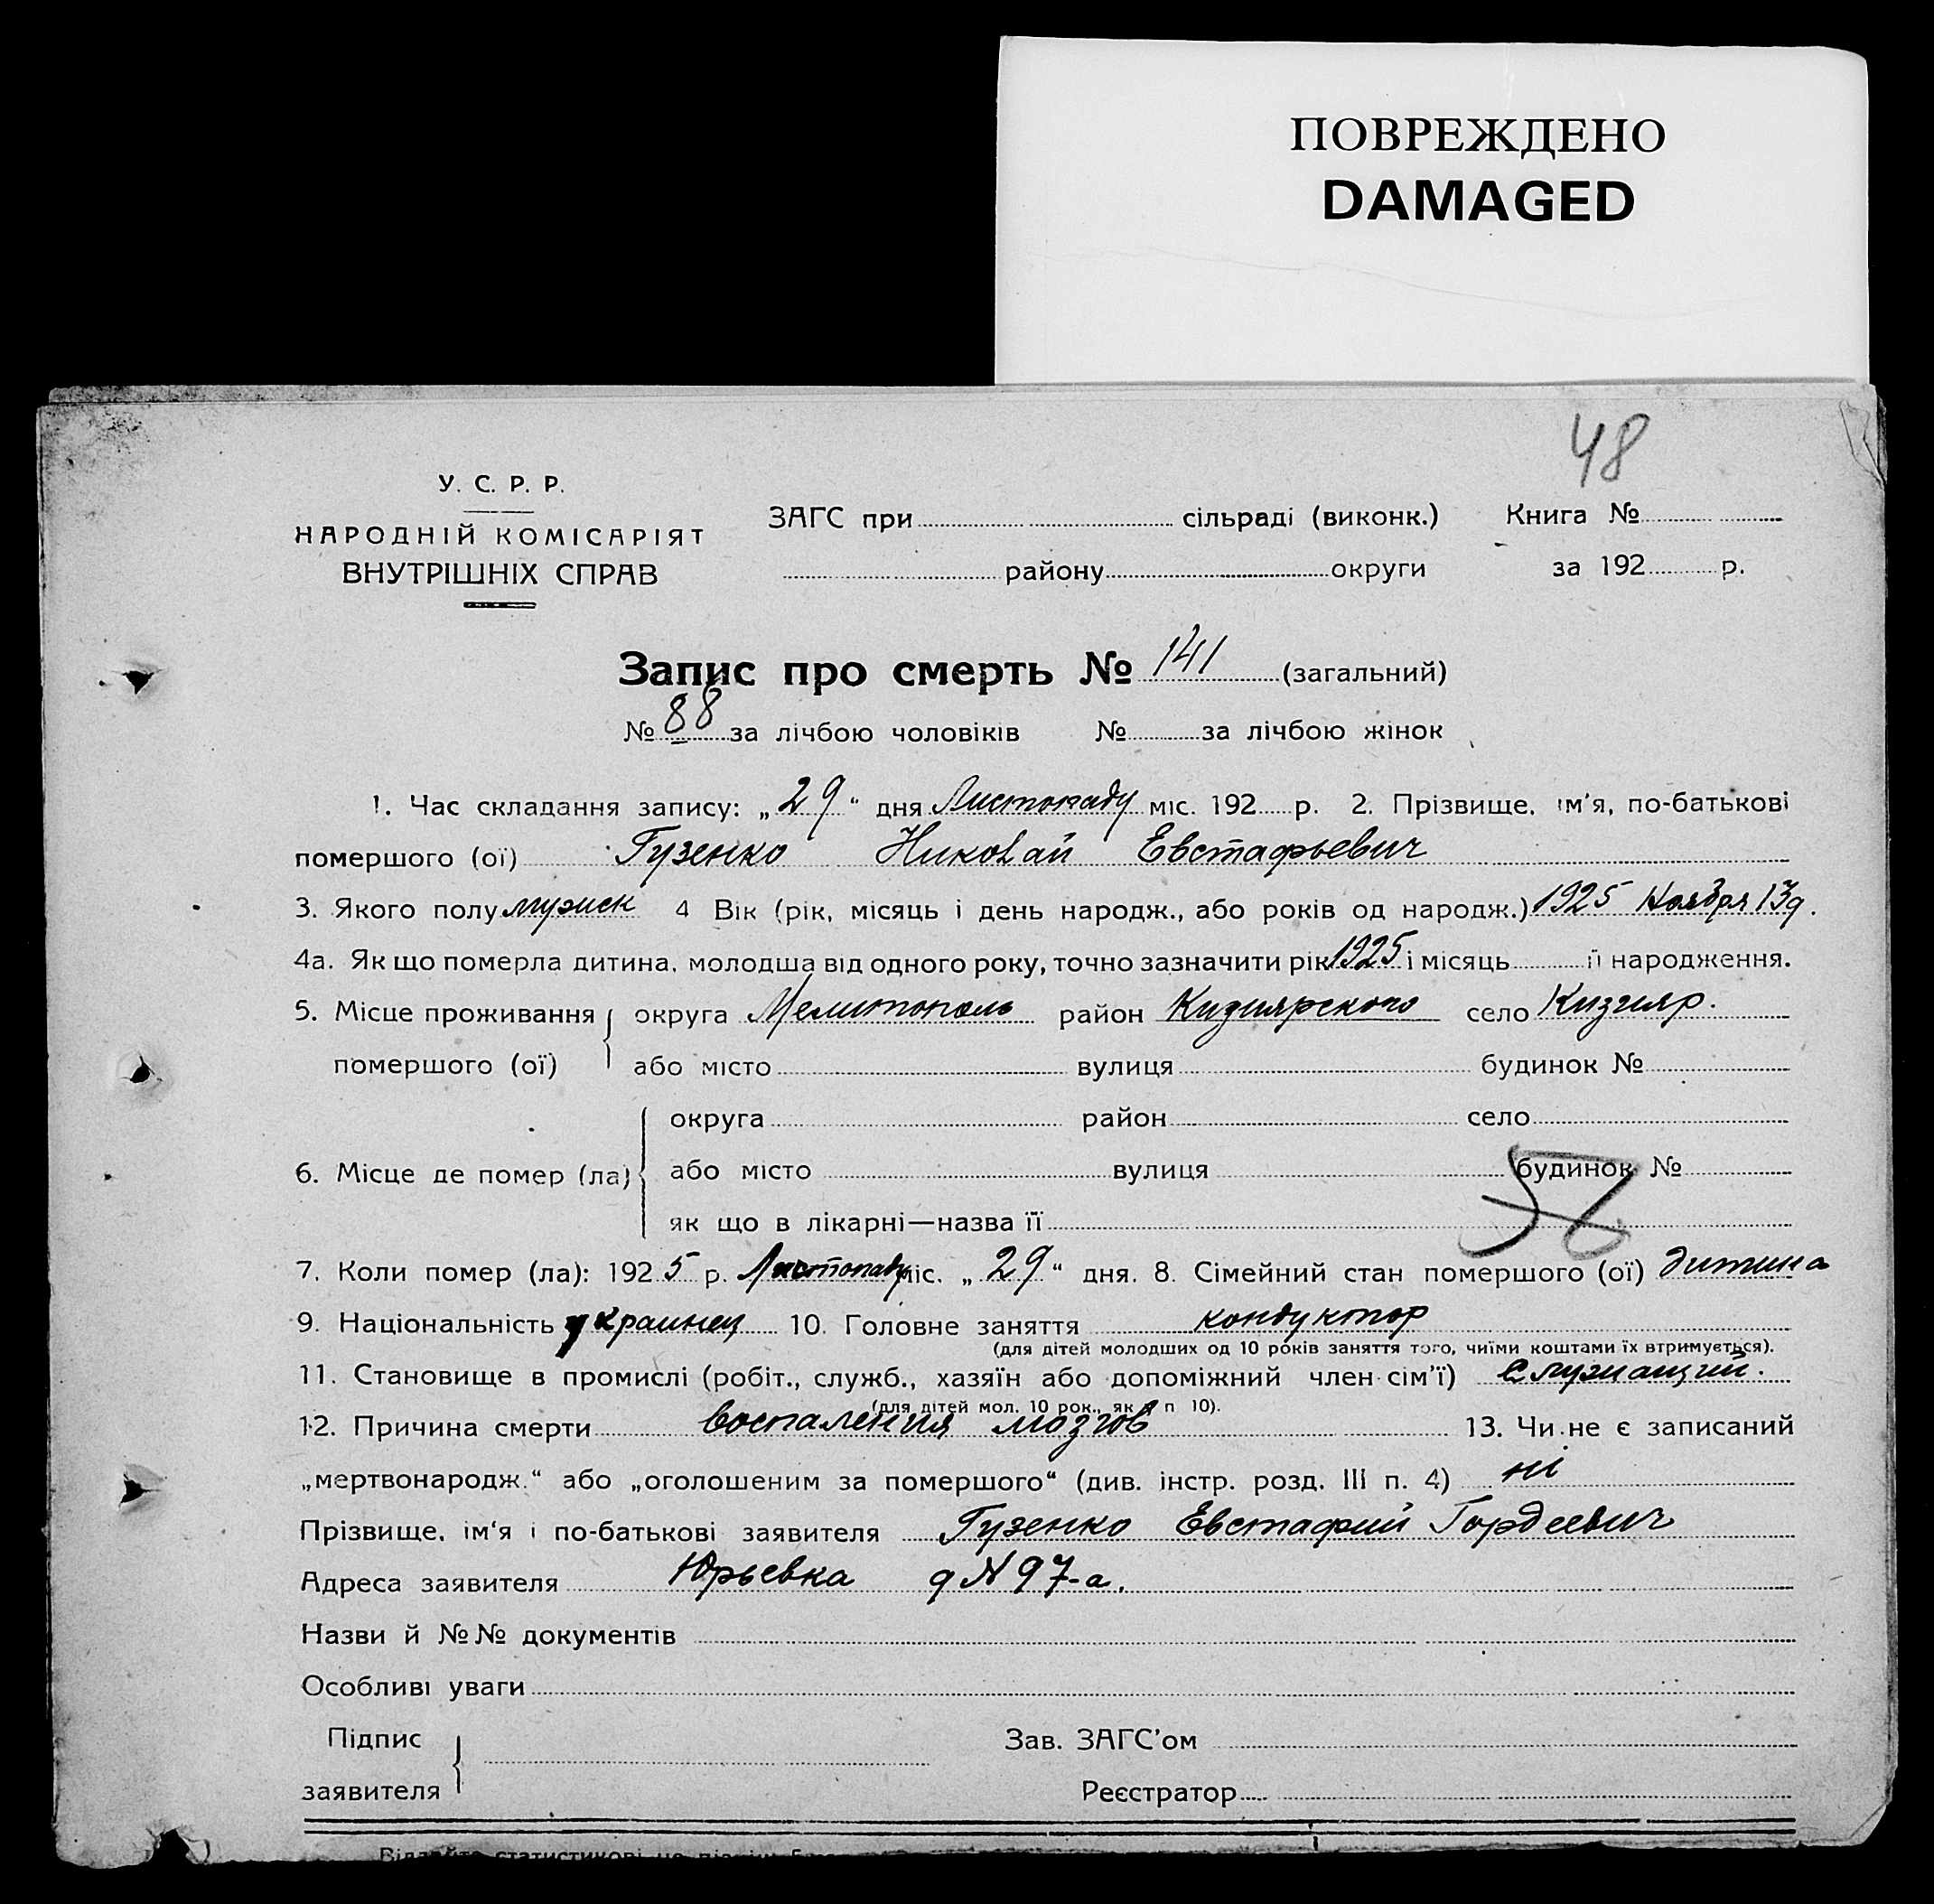 ПОВРЕЖДЕНО
DAMAGED
48
У. С. Р. Р.
НАРОДНІЙ КОМІСАРІЯТ
ВНУТРІШНІХ СПРАВ
ЗАГС при сільраді (виконк.) Книга №
району округи за 192 р.
Запис про смерть № 141 (загальний)
№ 88 за лічбою чоловіків № за лічбою жінок
1. Час складання запису: „29“ дня Листопаду міс. 192 р. 2. Прізвище, ім'я, по-батькові
помершого (ої) Гузенко Николай Евстафьевич
3. Якого полу мужиск 4 Вік (рік, місяць і день народж., або років од народж.) 1925 Ноября 13д.
4а. Як що померла дитина, молодша від одного року, точно зазначити рік 1925 і місяць її народження.
5. Місце проживання округа Мелитополь район Кизиярского село Кизияр.
помершого (ої) або місто вулиця будинок №
округа район село
6. Місце де помер (ла) або місто вулиця будинок №
як що в лікарні—назва її
7. Коли помер (ла): 1925 р. Листопаду міс. „29“ дня. 8. Сімейний стан помершого (ої) дитина
9. Національність украинец 10. Головне заняття кондуктор
(для дітей молодших од 10 років заняття того, чиїми коштами їх втримується).
11. Становище в промислі (робіт., служб., хазяїн або допоміжний член сім'ї) Служащий.
(для дітей мол. 10 рок., як в п 10).
12. Причина смерти воспаления мозгов 13. Чи не є записаний
„мертвонародж.“ або „оголошеним за помершого“ (див. інстр. розд. III п. 4) ні
Прізвище, ім'я і по-батькові заявителя Гузенко Евстафий Гордеевич
Адреса заявителя Юрьевка д N 97-а.
Назви й №№ документів
Особливі уваги
Підпис Зав. ЗАГС'ом
заявителя Реєстратор